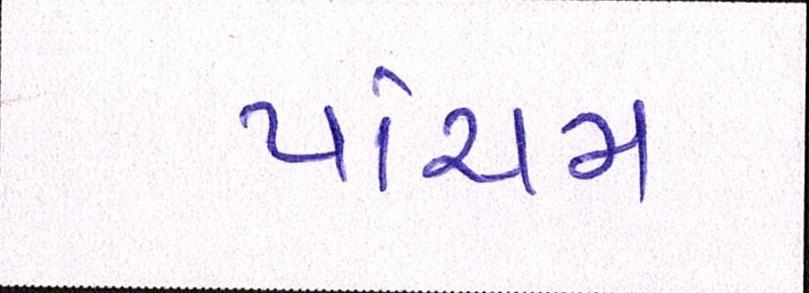 પાંચમ